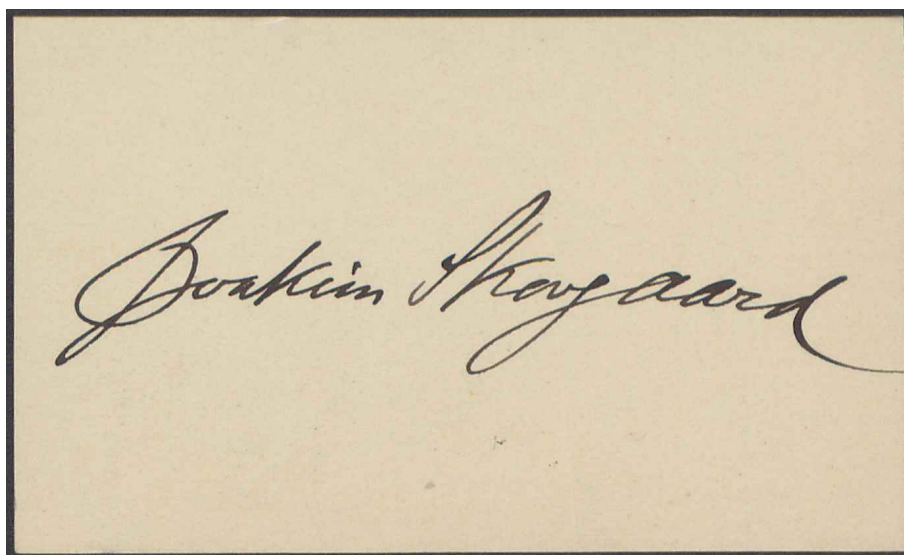 Joakim Skovgaard